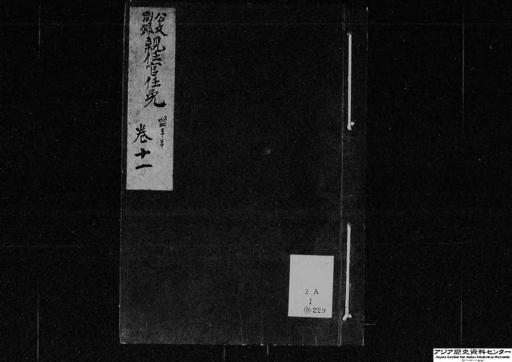 公文
別録
親任官任免
巻十一
2 A
1
㊕229
アジア歴史資料センター
Japan Center for Asian Historical Records